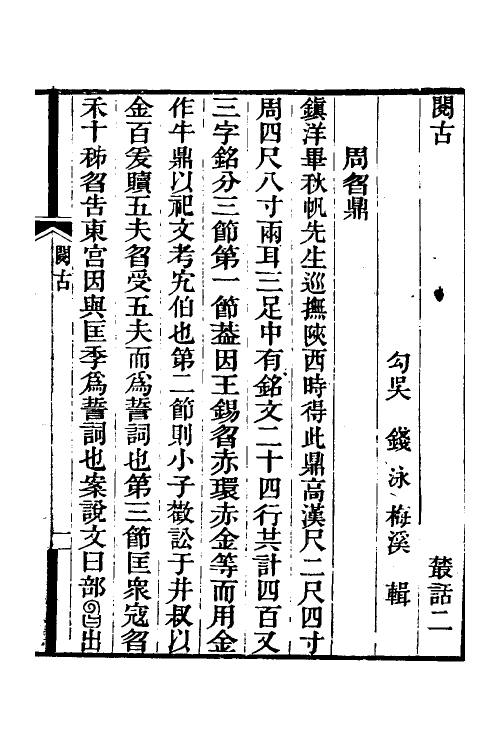 閱古 叢話二
勾吳 錢泳 梅溪 輯
周曶鼎
鎭洋畢秋帆先生巡撫陝西時得此鼎高漢尺二尺四寸
周四尺八寸兩耳三足中有銘文二十四行共計四百又
三字銘分三節第一節葢因王錫曶赤環赤金等而用金
作牛鼎以祀文考宄伯也第二節則小子訟于井叔以
金百爰贖五夫曶受五夫而爲誓詞也第三節匡衆寇曶
禾十秭曶吿東宮因與匡季爲誓詞也案說文曰部出
閱古
一